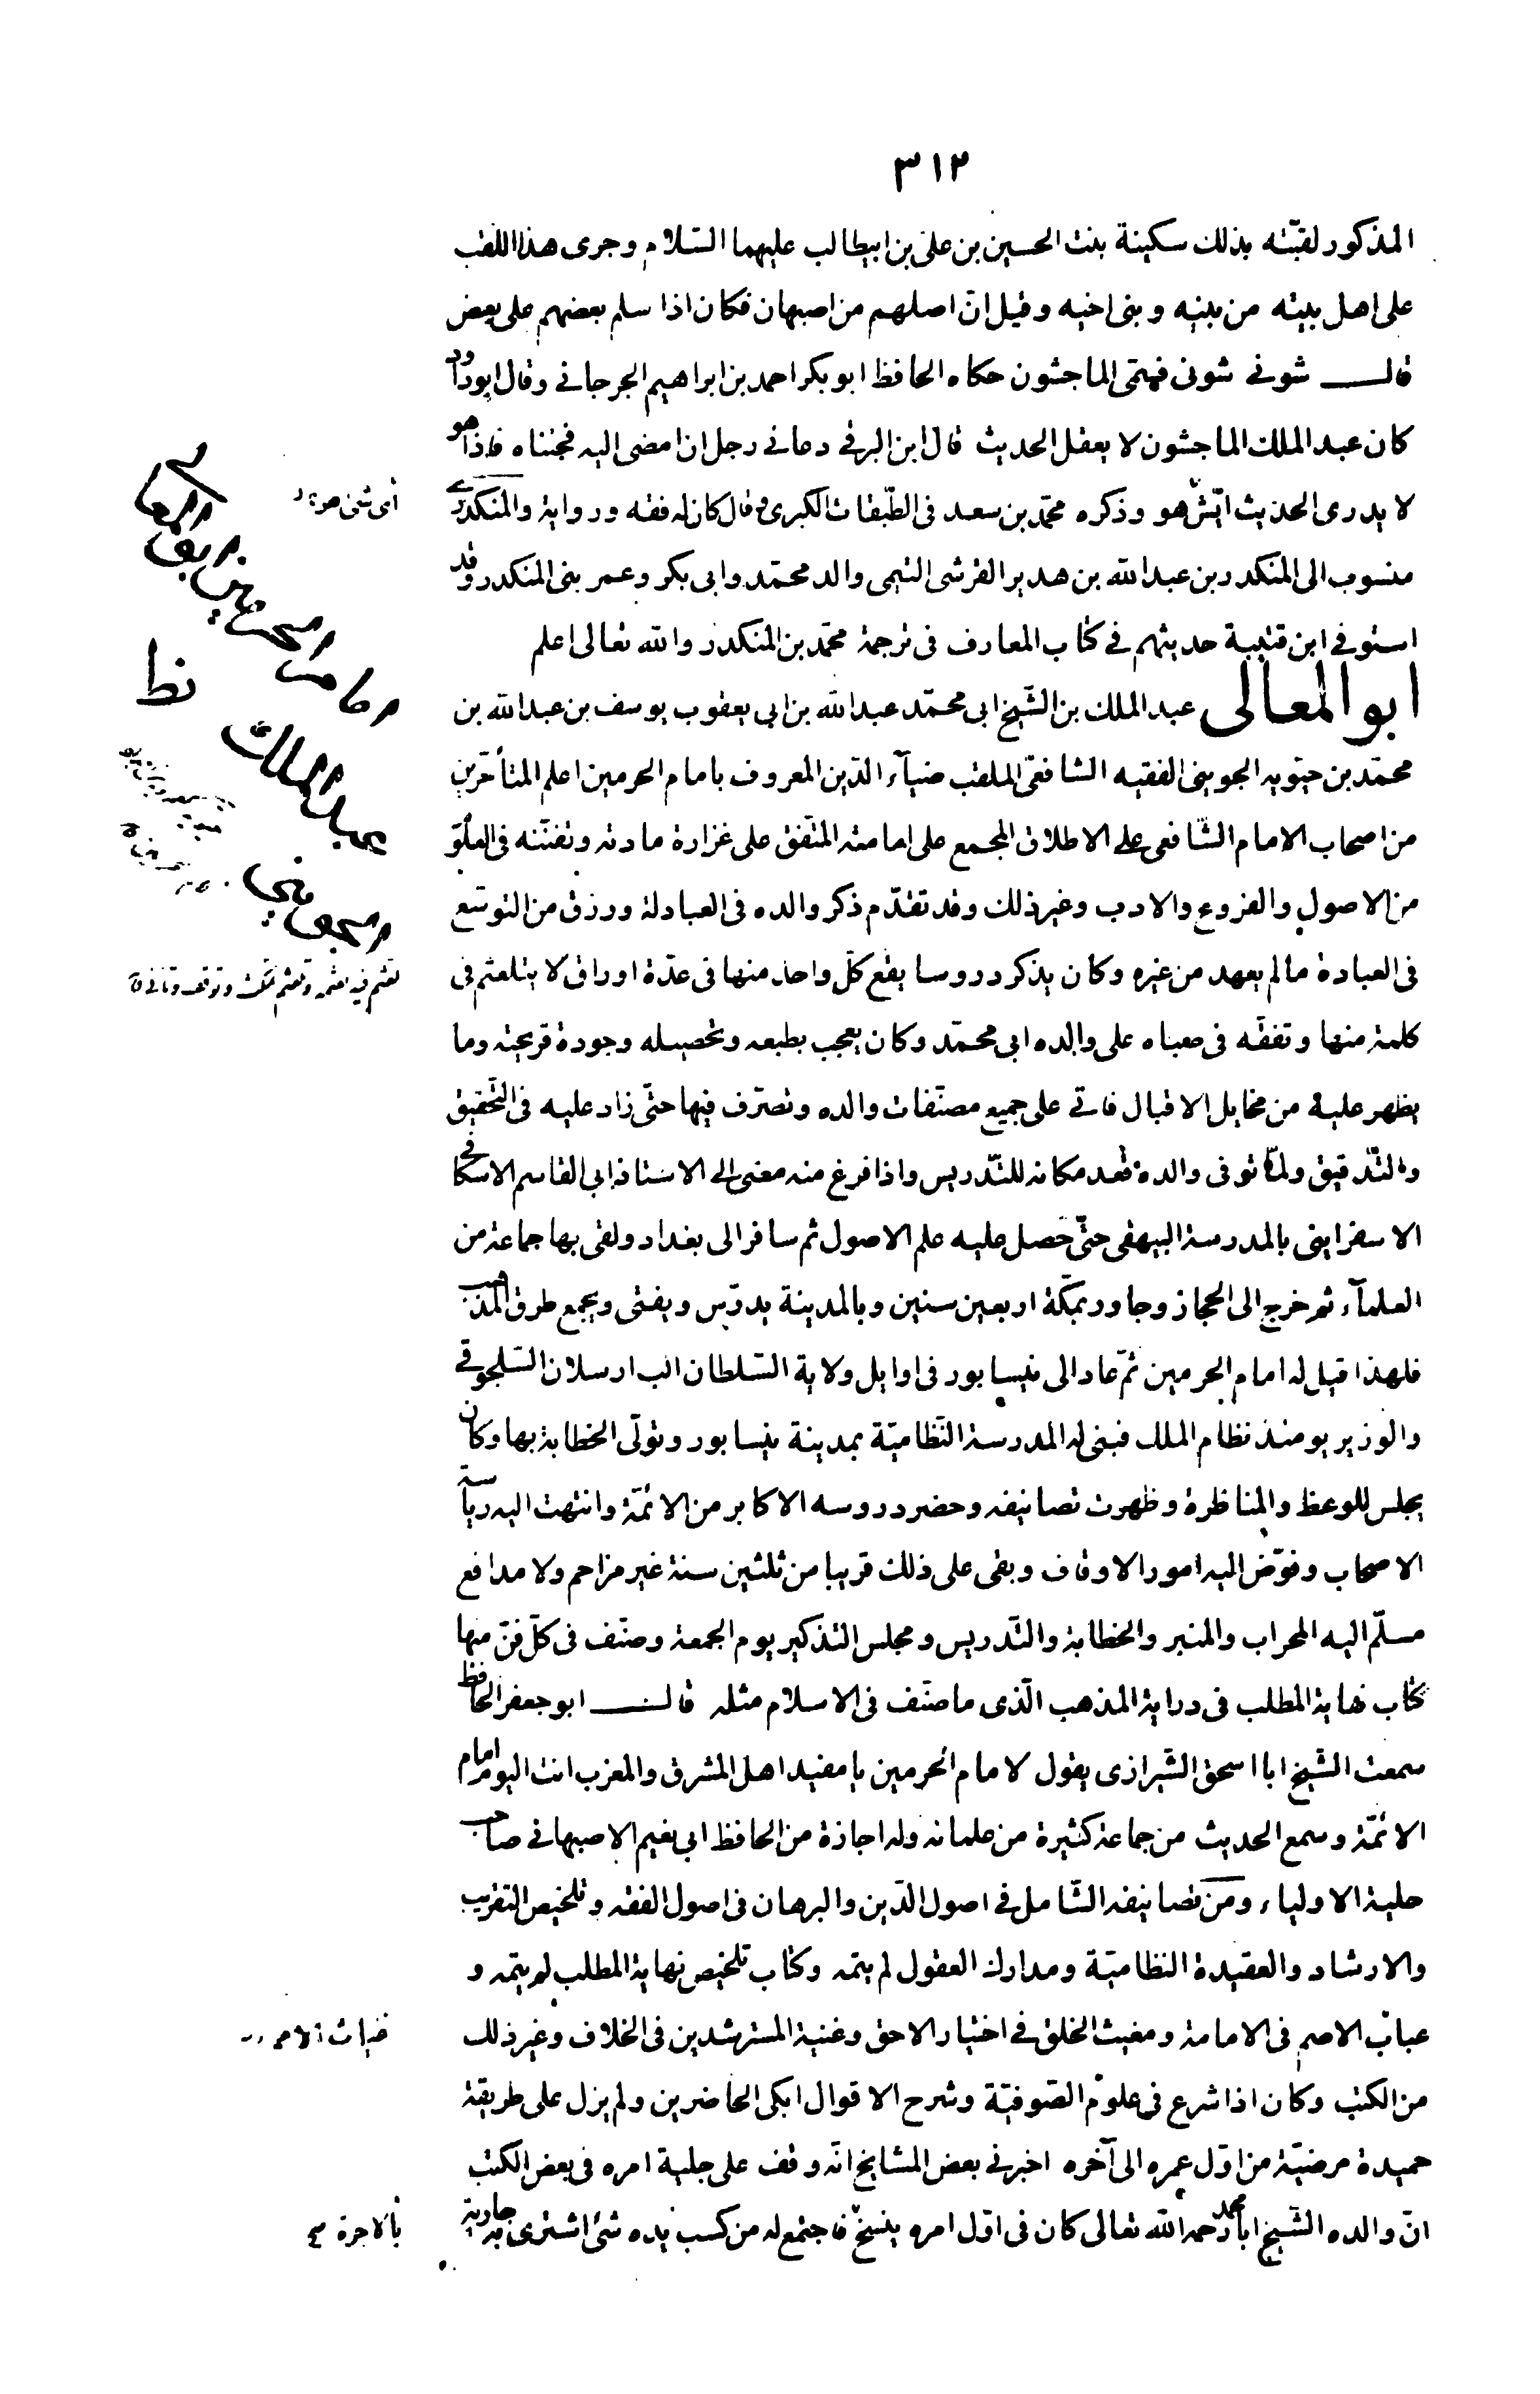 ٣١٢
المذكور لقبّته بذلك سكينة بنت الحسين بن على بن ابيطالب عليهما السّلام وجرى هذا اللقب
على اهل بيته من بنيه وبنى اخيه وقيل انّ اصلهم من اصبهان فكان اذا سلم بعضهم على بعض
قال شونى شونى فسمّى الماجشون حكاه الحافظ ابو بكر احمد بن ابراهيم الجرجانى وقال ابو داود
كان عبد الملك الماجشون لا يعقل الحديث قال ابن البرقى دعانى رجل ان امضى اليه فجئناه فاذا هو
لا يدرى الحديث ايّش هو وذكره محمّد بن سعد فى الطّبقات الكبرى وقال كان له فقه ورواية والمنكدرى
اى شئ هو
منسوب الى المنكدر بن عبد الله بن هدير القرشى التيمى والد محمّد وابى بكر وعمر بنى المنكدر وقد
استوفى ابن قتيبة حديثهم فى كتاب المعارف فى ترجمة محمّد بن المنكدر والله تعالى اعلم
ابو المعالى عبد الملك بن الشّيخ ابى محمّد عبد الله بن ابى يعقوب يوسف بن عبد الله بن
امام الحرمين ابو المعالى
عبد الملك
الجوينى
محمّد بن حيّويه الجوينى الفقيه الشافعىّ الملقب ضياء الدّين المعروف بامام الحرمين اعلم المتأخّرين
من اصحاب الامام الشّافعى على الاطلاق المجمع على امامته المتّفق على غزارة مادته وتفنّنه فى العلوم
من الاصول والفروع والادب وغير ذلك وقد تقدّم ذكر والده فى العبادلة ورزق من التوسّع
فى العبادة ما لم يعهد من غيره وكان يذكر دروسا يقع كلّ واحد منها فى عدّة اوراق لا يتلعثم فى
كلمة منها وتفقّه فى صباه على والده ابى محمّد وكان يعجب بطبعه وتحصيله وجودة قريحته وما
يظهر عليه من مخايل الاقبال فاتى على جميع مصنّفات والده وتصرّف فيها حتّى زاد عليه فى التّحقيق
والتّدقيق ولمّا توفى والده قعد مكانه للتّدريس واذا فرغ منه مضى الى الاستاذ ابى القاسم الاسكافى
الاسفراينى بالمدرسة البيهقى حتّى حصل عليه علم الاصول ثم سافر الى بغداد ولقى بها جماعة من
العلمآء ثم خرج الى الحجاز وجاور بمكّة اربعين سنين وبالمدينة يدرّس ويفتى ويجمع طرق المذهب
فلهذا قيل له امام الحرمين ثمّ عاد الى نيسابور فى اوايل ولاية السّلطان الب ارسلان السّلجوقى
والوزير يومئذ نظام الملك فبنى له المدرسة النّظاميّة بمدينة نيسابور وتولّى الخطابة بها وكان
يجلس للوعظ والمناظرة وظهرت تصانيفه وحضر دروسه الاكابر من الائمّة وانتهت اليه رياسة
الاصحاب وفوّض اليه امور الاوقاف وبقى على ذلك قريبا من ثلثين سنة غير مزاحم ولا مدافع
مسلّم اليه المحراب والمنبر والخطابة والتّدريس ومجلس التذكير يوم الجمعة وصنّف فى كلّ فنّ منها
كتاب نهاية المطلب فى دراية المذهب الّذى ما صنّف فى الاسلام مثله قال ابو جعفر الحافظ
سمعت الشّيخ ابا اسحق الشّيرازى يقول لامام الحرمين يا مفيد اهل المشرق والمغرب انت اليوم امام
الائمّة وسمع الحديث من جماعة كثيرة من علمائه وله اجازة من الحافظ ابى نعيم الاصبهانى صاحب
حلية الاولياء ومن تصانيفه الشّامل فى اصول الدّين والبرهان فى اصول الفقه وتلخيص التقريب
والارشاد والعقيدة النظاميّة ومدارك العقول لم يتمه وكتاب تلخيص نهاية المطلب لم يتمه و
غياث الامم فى الامامة ومغيث الخلق فى اختيار الاحق وغنية المسترشدين فى الخلاف وغير ذلك
غياث الامم
من الكتب وكان اذا شرع فى علوم الصّوفيّة وشرح الاقوال ابكى الحاضرين ولم يزل على طريقة
حميدة مرضيّة من اوّل عمره الى آخره اخبرنى بعض المشايخ انّه وقف على جلية امره فى بعض الكتب
انّ والده الشّيخ ابا محمد رحمه الله تعالى كان فى اوّل امره ينسخ فاجتمع له من كسب يده شئ اشترى به جارية
بالاجرة